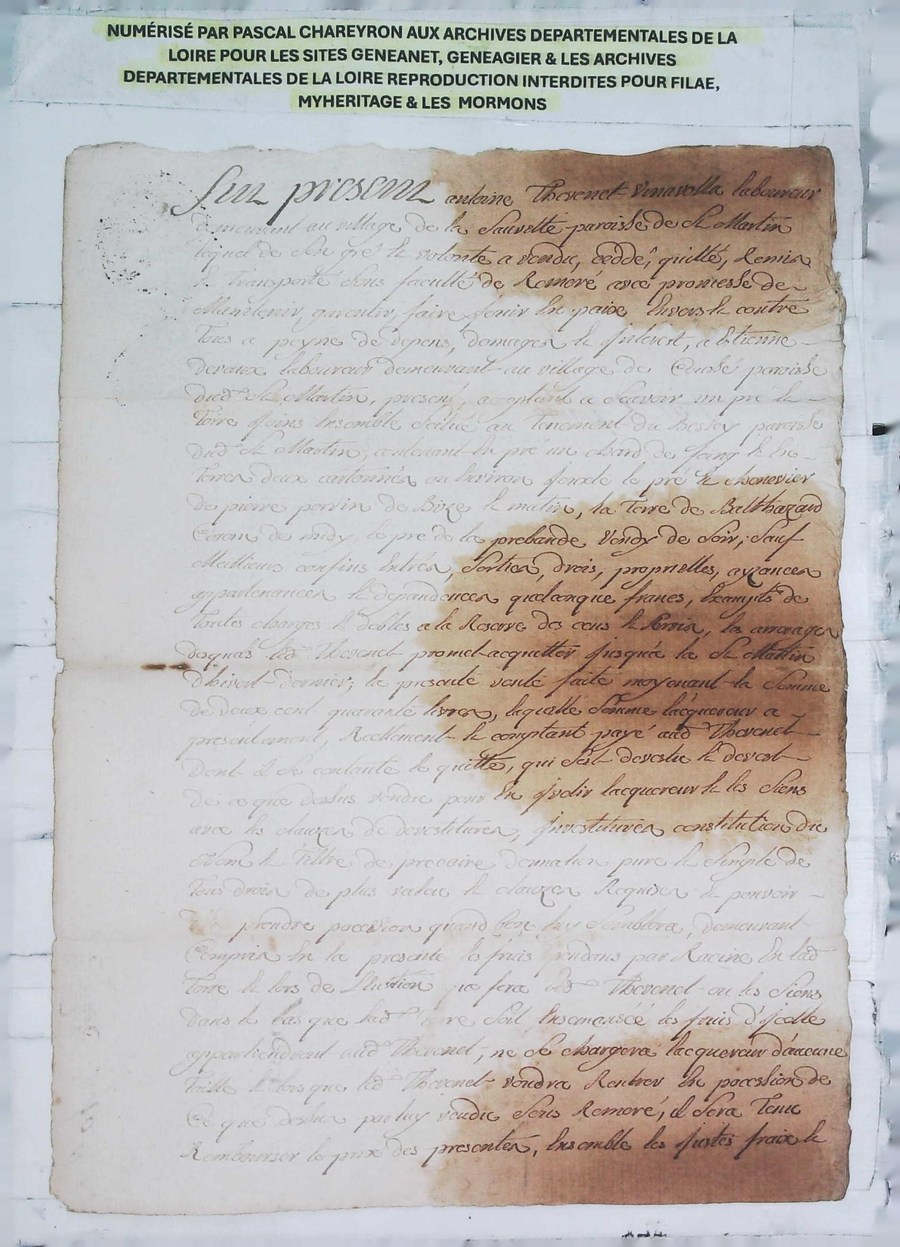 NUMÉRISÉ PAR PASCAL CHAREYRON AUX ARCHIVES DEPARTEMENTALES DE LA
LOIRE POUR LES SITES GENEANET, GENEAGIER & LES ARCHIVES
DEPARTEMENTALES DE LA LOIRE REPRODUCTION INTERDITES POUR FILAE,
MYHERITAGE & LES MORMONS
Fut presenr antoine Thevenet laboureur
demeurant au village de la Sauvette paroisse de St Martin
lequel de Son gré et volonté a vendu, ceddé, quitté, Remis
et Transporté Sous faculté de Remeré avec promesse de
Maintenir, garentir, faire jouir En paix Envers et contre
Tous a peyne de depens, domages et jnterest, a Etienne
devaux laboureur demeurant au village de paroisse
dud. St Martin, present, aceptant a Scavoir un pré et
Terre joins Ensemble Scitué au Tenement du Bessey paroisse
dud. St Martin, contenant le pré un chard de foing et la
Terre deux cartonnés ou Environ jouxte le pré et chenevier
de pierre perrin de Bize et matin, la Terre de Balthazard
de midy, le pré de la prebande Vendy de Soir, Sauf
Meilleurs confins Entrés, Sorties, drois, proprietés, ayzances
appartenances et dependences quelconque francs, Exempts de
Toutes charges et debtes a la Reserve des cens et Servis, les arrerages
desquels led. Thevenet promet acquitter jusqua la St Martin
d'hivert dernier; la presente vente faite moyenant la Somme
de deux cent quarante livres, laquelle Somme lacquereur a
presentement, Reellement et comptant payé aud. Thevenet
Dont il Se contante et quitte, qui Sest devestu et devest
de ce que dessus vendu pour En jnvetir lacquereur et les Siens
avec les clauzes de devestitures, jnvestitures constitution du
nom et Tiltre de precaire donnation pure et Simple de
Tous drois de plus value et clauzes Requises et pouvoir
prendre pocession quand bon luy Semblera, demeurant
Compris En la presente les fruis pendans par Racine En lad.
Terre et lors de fera led. Thevenet ou les Siens
dans le Cas que lad. terre Soit Ensemencée les fruis d'jcelle
appartiendront aud. Thevenet, ne Se chargera lacquereur d'aucune
Taille et lors que led. Thevenet voudra Rentrer En pocession de
Ce que dessus par luy vendu Sous Remeré, il Sera Tenu
Rembourser le prix des presentes, Ensemble les justes fraix et